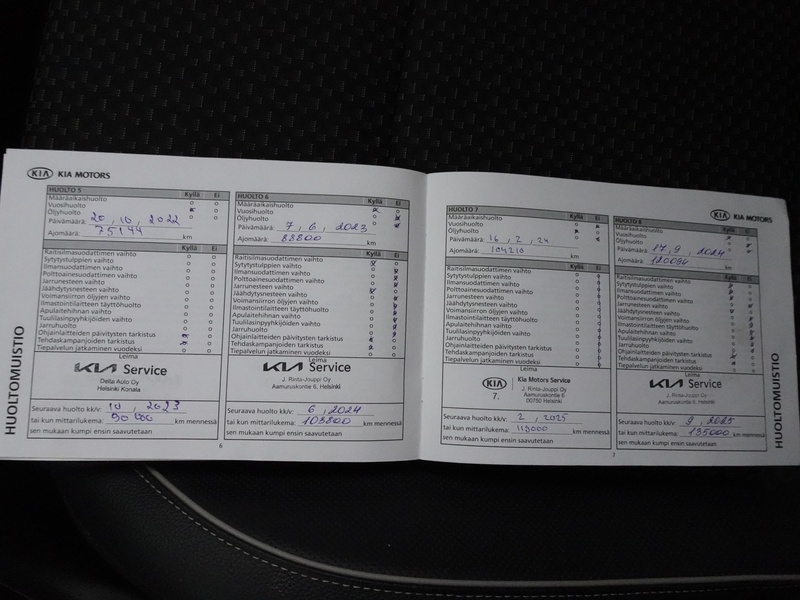 KIA KIA MOTORS
HUOLTO 5 Kyllä Ei
Määräaikaishuolto
Vuosihuolto
Öljyhuolto
Päivämäärä: 20, 10, 2022
Ajomäärä: 75144 km
Kyllä Ei
Raitisilmasuodattimen vaihto
Sytytystulppien vaihto
Ilmansuodattimen vaihto
Polttoainesuodattimen vaihto
Jarrunesteen vaihto
Jäähdytysnesteen vaihto
Voimansiirron öljyjen vaihto
Ilmastointilaitteen täyttöhuolto
Apulaitehihnan vaihto
Tuulilasinpyyhkijöiden vaihto
Jarruhuolto
Ohjainlaitteiden päivitysten tarkistus
Tehdaskampanjoiden tarkistus
Tiepalvelun jatkaminen vuodeksi
Leima
KIA Service
Delta Auto Oy
Helsinki Konala
Seuraava huolto kk/v: 10, 2023
tai kun mittarilukema: 90 000 km mennessä
sen mukaan kumpi ensin saavutetaan
HUOLTO 6 Kyllä Ei
Määräaikaishuolto
Vuosihuolto
Öljyhuolto
Päivämäärä: 7, 6, 2023
Ajomäärä: 88800 km
Kyllä Ei
Raitisilmasuodattimen vaihto
Sytytystulppien vaihto
Ilmansuodattimen vaihto
Polttoainesuodattimen vaihto
Jarrunesteen vaihto
Jäähdytysnesteen vaihto
Voimansiirron öljyjen vaihto
Ilmastointilaitteen täyttöhuolto
Apulaitehihnan vaihto
Tuulilasinpyyhkijöiden vaihto
Jarruhuolto
Ohjainlaitteiden päivitysten tarkistus
Tehdaskampanjoiden tarkistus
Tiepalvelun jatkaminen vuodeksi
Leima
KIA Service
J. Rinta-Jouppi Oy
Aamuruskontie 6, Helsinki
Seuraava huolto kk/v: 6, 2024
tai kun mittarilukema: 103800 km mennessä
sen mukaan kumpi ensin saavutetaan
HUOLTOMUISTIO
6
HUOLTO 7 Kyllä Ei
Määräaikaishuolto
Vuosihuolto
Öljyhuolto
Päivämäärä: 16, 2, 24
Ajomäärä: 104210 km
Kyllä Ei
Raitisilmasuodattimen vaihto
Sytytystulppien vaihto
Ilmansuodattimen vaihto
Polttoainesuodattimen vaihto
Jarrunesteen vaihto
Jäähdytysnesteen vaihto
Voimansiirron öljyjen vaihto
Ilmastointilaitteen täyttöhuolto
Apulaitehihnan vaihto
Tuulilasinpyyhkijöiden vaihto
Jarruhuolto
Ohjainlaitteiden päivitysten tarkistus
Tehdaskampanjoiden tarkistus
Tiepalvelun jatkaminen vuodeksi
Leima
KIA Kia Motors Service
7. J. Rinta-Jouppi Oy
Aamuruskontie 8
00750 Helsinki
Seuraava huolto kk/v: 2, 2025
tai kun mittarilukema: km mennessä
sen mukaan kumpi ensin saavutetaan
KIA KIA MOTORS
HUOLTO 8 Kyllä Ei
Määräaikaishuolto
Vuosihuolto
Öljyhuolto
Päivämäärä: 17, 9, 2024
Ajomäärä: km
Kyllä Ei
Raitisilmasuodattimen vaihto
Sytytystulppien vaihto
Ilmansuodattimen vaihto
Polttoainesuodattimen vaihto
Jarrunesteen vaihto
Jäähdytysnesteen vaihto
Voimansiirron öljyjen vaihto
Ilmastointilaitteen täyttöhuolto
Apulaitehihnan vaihto
Tuulilasinpyyhkijöiden vaihto
Jarruhuolto
Ohjainlaitteiden päivitysten tarkistus
Tehdaskampanjoiden tarkistus
Tiepalvelun jatkaminen vuodeksi
Leima
KIA Service
J. Rinta-Jouppi Oy
Aamuruskontie 6, Helsinki
Seuraava huolto kk/v: 9, 2025
tai kun mittarilukema: 135000 km mennessä
sen mukaan kumpi ensin saavutetaan
HUOLTOMUISTIO
7